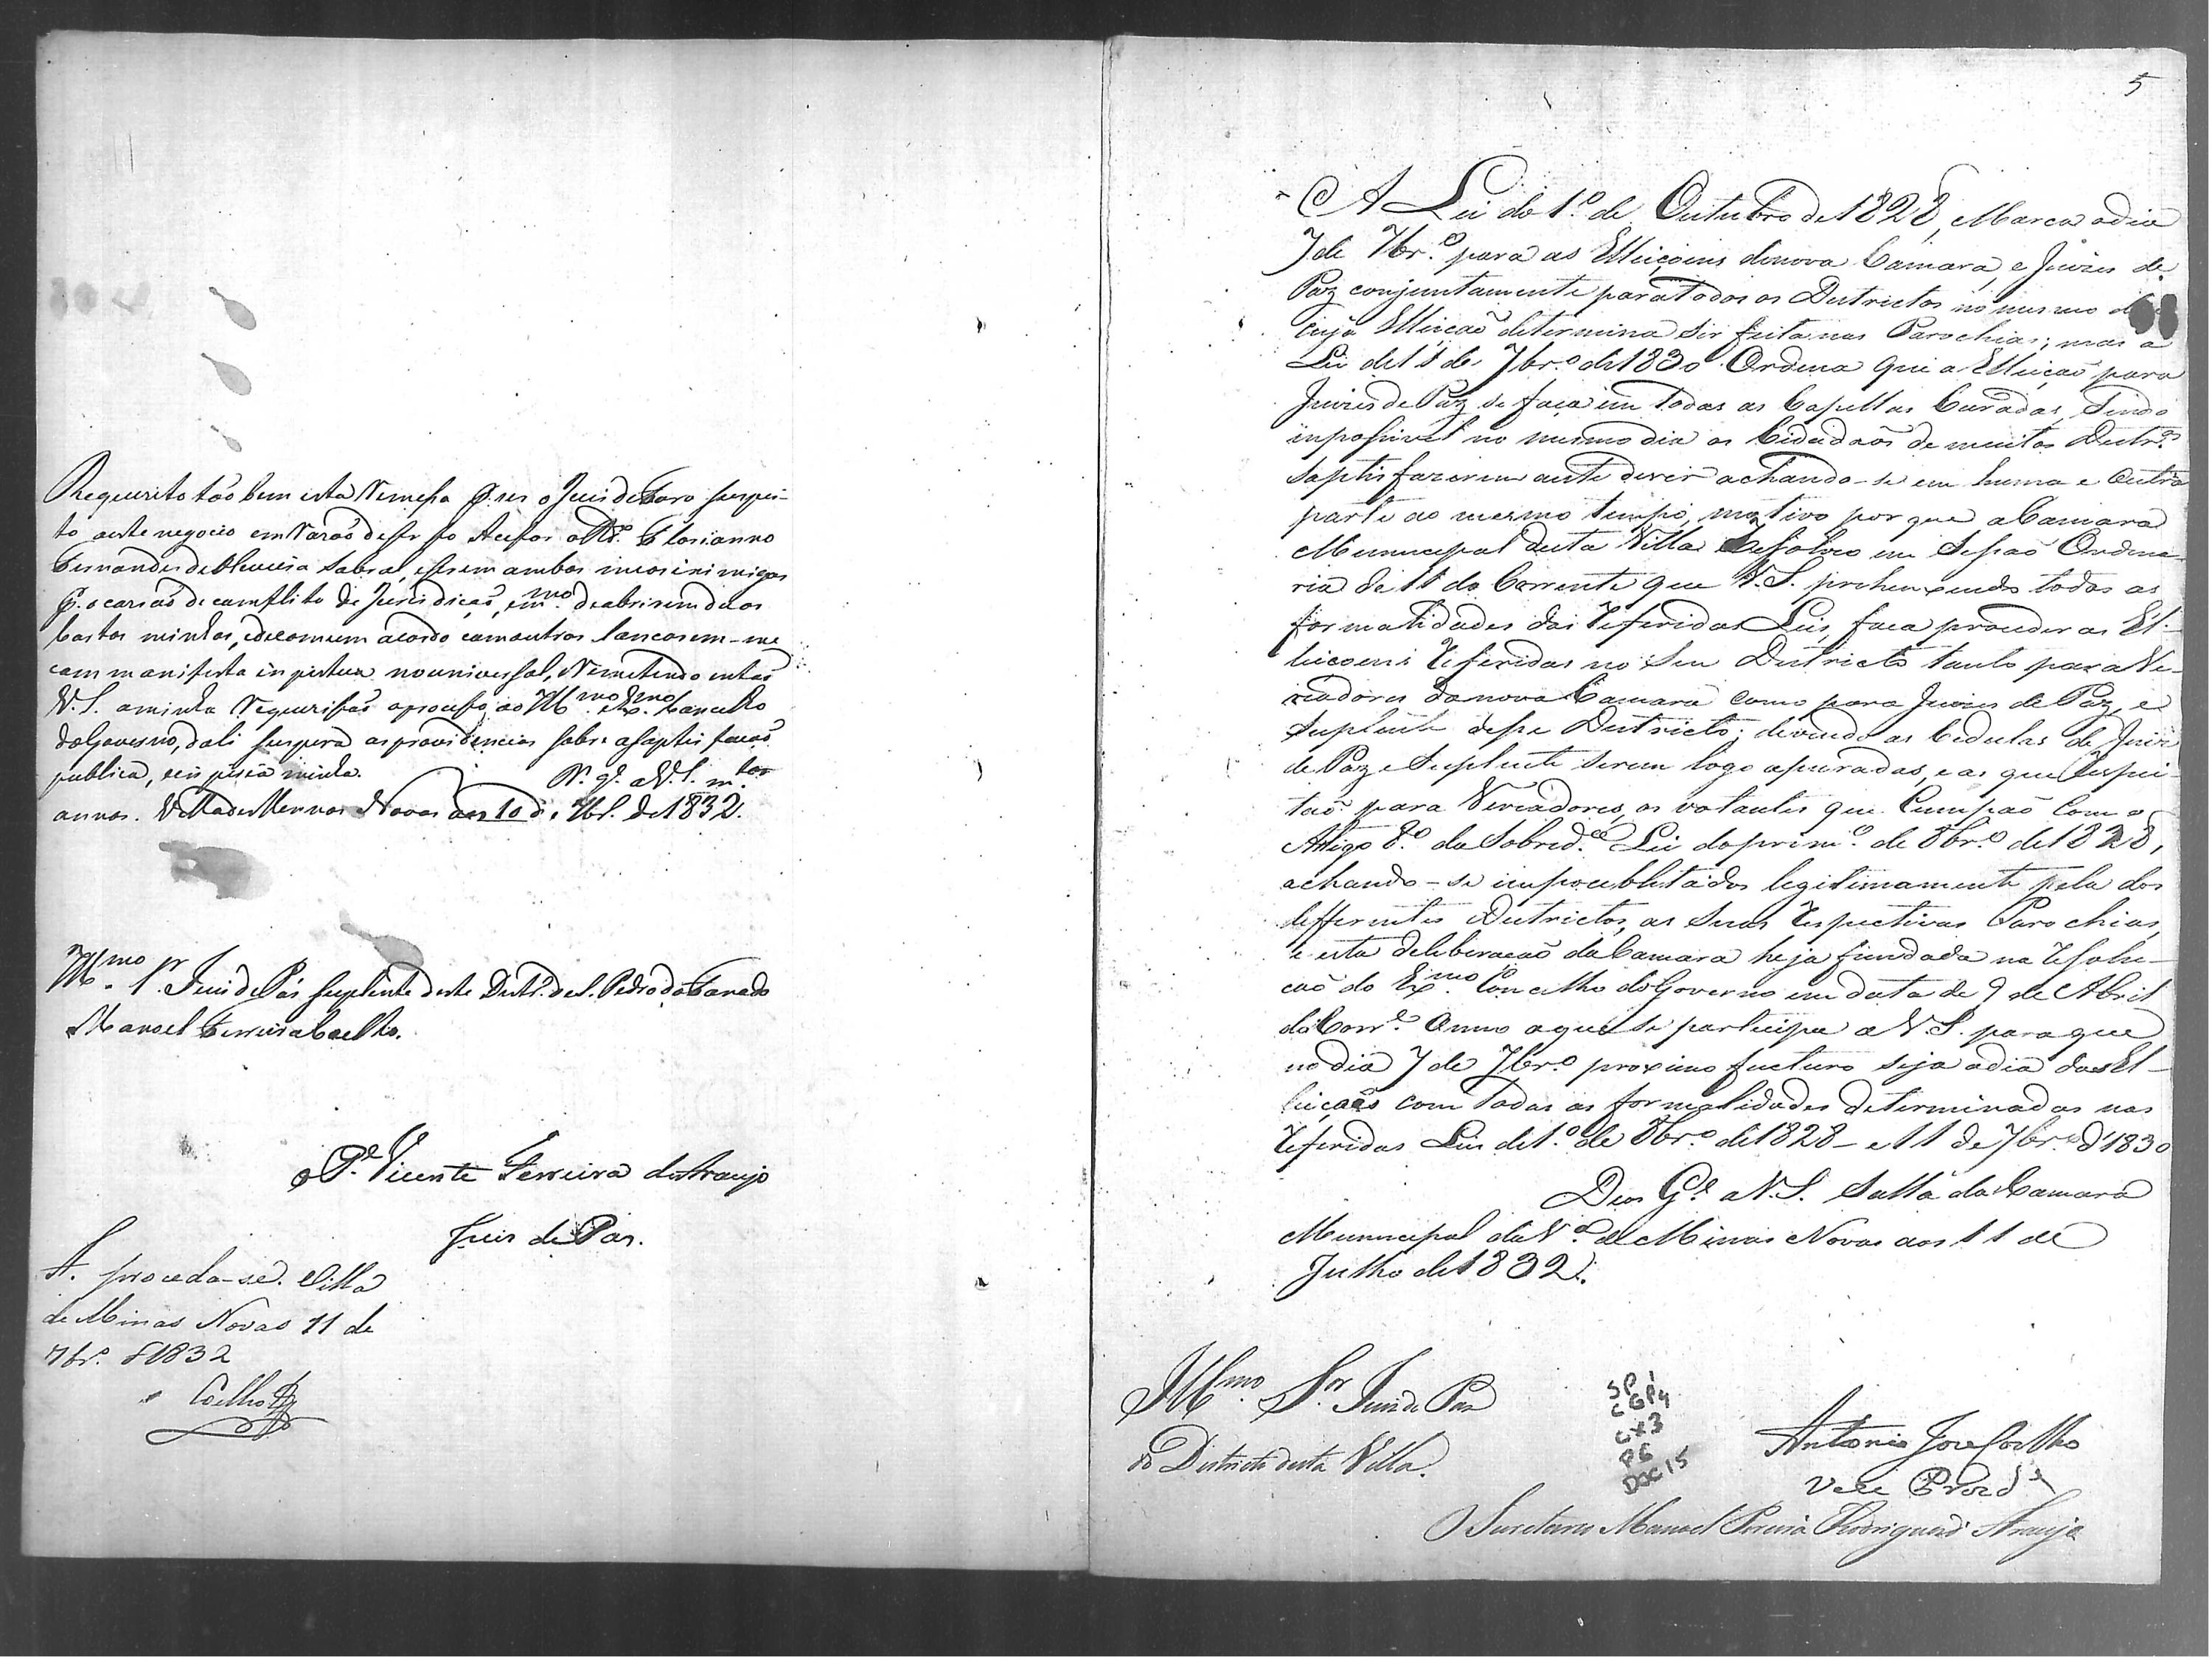 Requeiro tão bem esta Remessa p.r ser o Juis de Fora suspei-
to neste negocio em rasaõ de ser so Acessor o R.do Florianno
Fernandes de Oliveira Sabra, e serem ambos meos inimigos
p.r ocasiaõ de comflito de Jurisdiçaõ, e m.mo de abrirem duas
Cartas minhas, e de comum acordo com outros lancarem-me
com manifesta impostura no universal, Remetendo entaõ
V.S. a minha Requerisaõ o processo ao Ill.mo e Ex.mo Concelho
do Governo, dali se espera as providencias sobre a saptisfacaõ
publica,
D.s g.e a V.S. m.tos
annos. Villa de Minnas Novas aos 10 de 7br.o de 1832.
Ill.mo Sr. Juis de Pás Suplente deste Destr.o de S. Pedro do Fanado
Manoel Ferreira Coelho.
o P.e Vicente Ferreira de Araujo
Juis de Pas.
A. proceda-se. Villa
de Minas Novas 11 de
7br.o d 1832
Coelho
5
A Lei do 1.o de Outubro de 1828, Marca o dia
7 de 7br.o para as Elleiçoens da nova Camara, e Juizes de
Paz conjuntamente para todos os Destrictos no mesmo
cuja Elleicaõ determina ser feita nas Parochias; mas a
Lei de 11 de 7br.o de 1830 Ordena que a Elleicaõ para
Juizes de Paz se faça em todas as Capellas Curadas, Sendo
inpossivel no mesmo dia os Cidadaõs de muitos Destr.os
saptisfazerem a este dever achando-se em huma e Outra
parte ao mesmo tempo, motivo por que a Camara
Municepal desta Villa Resolveo em Sessaõ Ordina-
ria de 11 do Corrente que V.S. prehenxendo todas as
formalidades das Referidas Leis, faca proceder as El-
leicoens Referidas no Seu Destricto tanto para Ve-
riadores da nova Camara como para Juizes de Paz, e
Suplente desse Destricto; devendo as Cedulas de Juiz
de Paz e Suplente serem logo apuradas, e as que Respei-
taõ para Veriadores, os votantes que Cumpraõ Com o
Artigo 8.o da Sobred.a Lei do prim.o de 8br.o de 1828,
achando-se impoceblitados legitimamente pela dos
defferentes Destrictos, as Suas Respectivas Parochias,
e esta deliberacaõ da Camara heja fundada na Resolu-
caõ do Ex.mo Concelho do Governo em data de 9 de Abril
do Corr.e Anno aque se participa a V.S. para que
no dia 7 de 7br.o proximo fucturo seja o dia das El-
leiçaõs com todas as formalidades determinadas nas
Referidas Leis de 1.o de 8br.o de 1828 - e 11 de 7br.o d'1830
Deos G.e a V.S. Salla da Camara
Municepal da V.a de Minas Novas aos 11 de
Julho de 1832.
Ill.mo Sr. Juis de Paz
do Destricto desta Villa.
SP 1
CGP4
CX3
P6
DOC 15
Antonio Jose Coelho
Vece Prezd.e
O Secretario Manoel Pereira Rodrigues d' Araujo